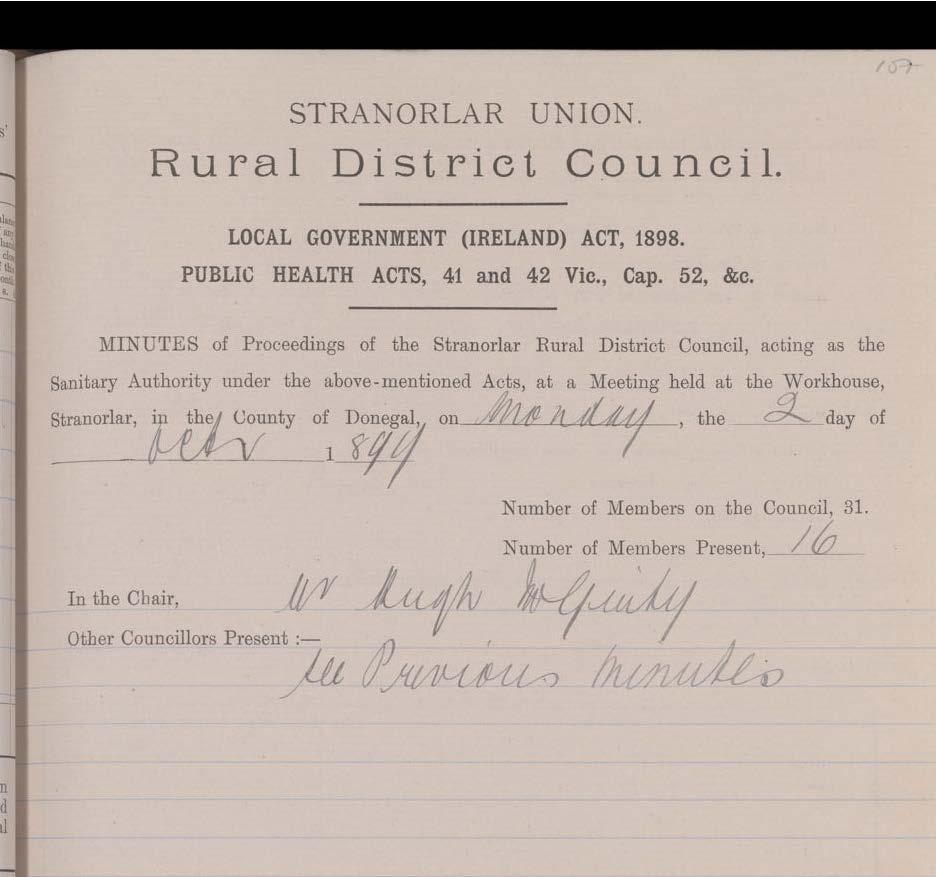 STRANORLAR UNION.
Rural District Council.
LOCAL GOVERNMENT (IRELAND) ACT, 1898.
PUBLIC HEALTH ACTS, 41 and 42 Vic., Cap. 52, &c.
MINUTES of Proceedings of the Stranorlar Rural District Council, acting as the
Sanitary Authority under the above-mentioned Acts, at a Meeting held at the Workhouse,
Stranorlar, in the County of Donegal, on Monday, the 2 day of
Octr 1899
Number of Members on the Council, 31.
Number of Members Present, 16
In the Chair, Mr Hugh McGinty
Other Councillors Present :—
see Previous minutes